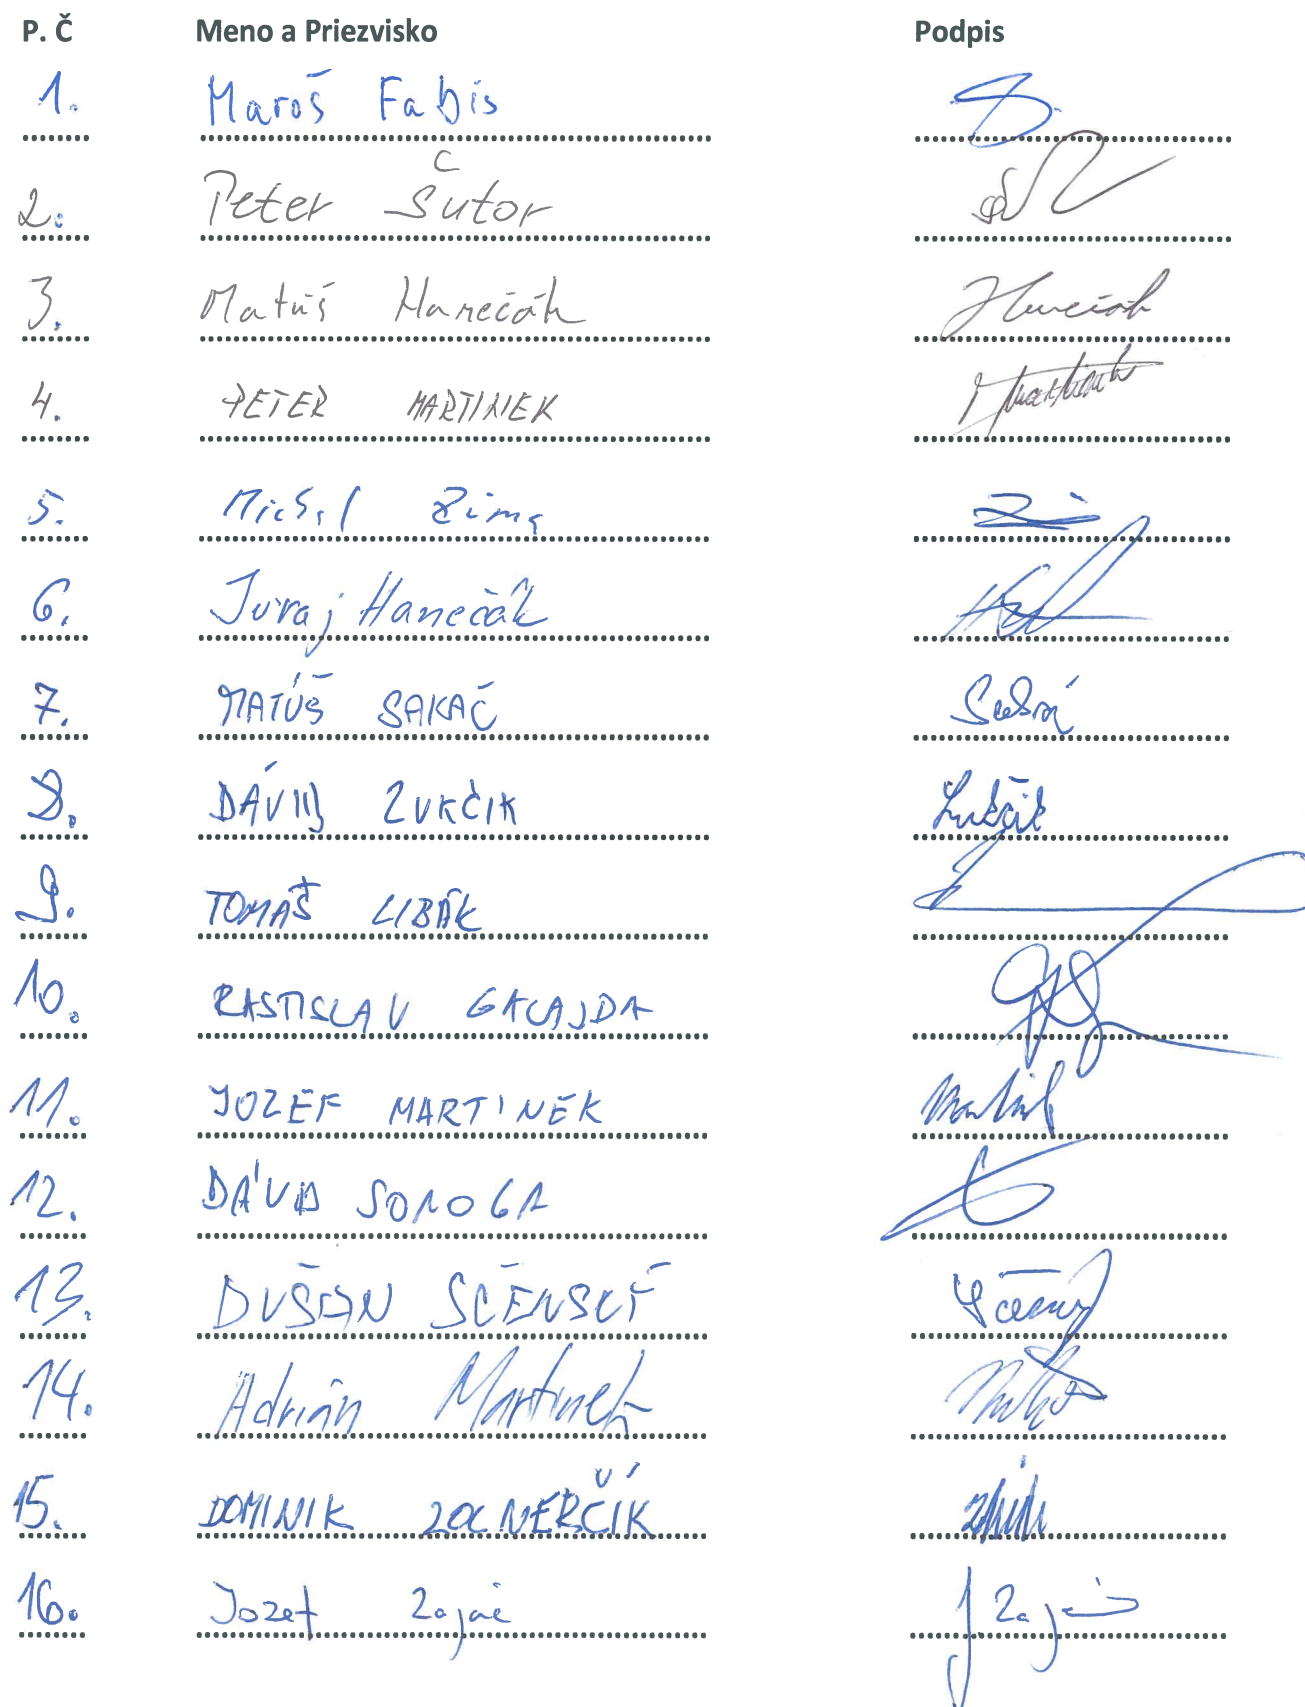 P. Č Meno a Priezvisko Podpis
1. Maroš Fabis
2. Peter Šutor
3. Matúš Hanečák Hanečák
4. PETER MARTINEK Martinek
5. Michal Zima
6. Juraj Hanečák
7. MATÚŠ SAKAČ
8. DÁVID LUKČIK Lukčik
9. TOMAŠ LIBÁK
10. RASTISLAV GALAJDA
11. JOZEF MARTINEK
12. DÁVID
13. DUŠAN SČENSKÝ
14. Adrián Martinek
15. DOMINIK ZOLNERČÍK
16. Jozef Zajac J Zajac